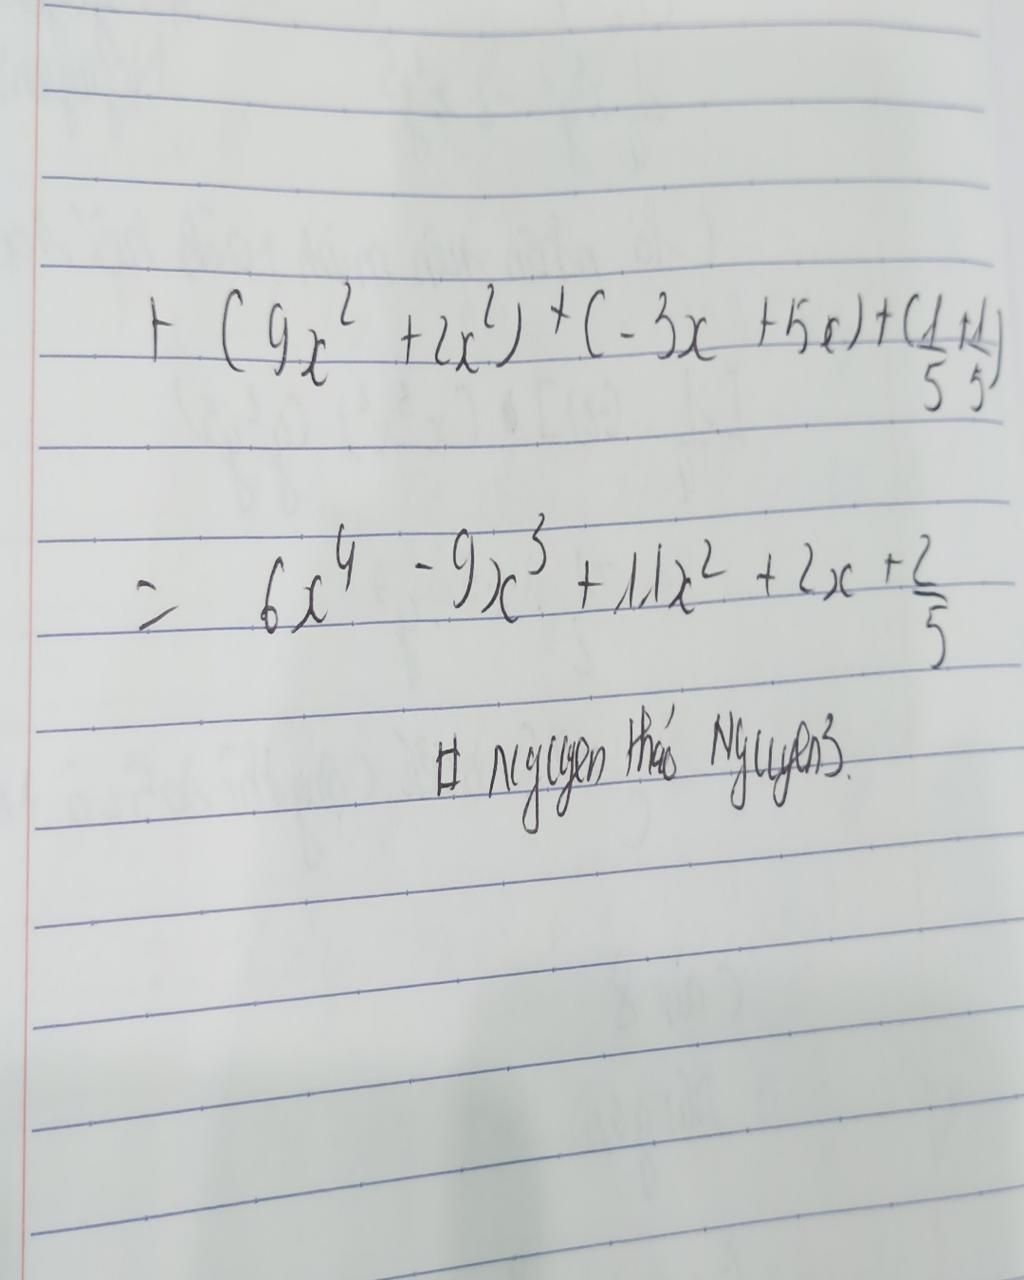 + (9x² + 2x²) + (-3x + 5x) + (1/5 + 1/5)
= 6x⁴ - 9x³ + 11x² + 2x + 2/5
# Nguyen thảo Nguyen3.